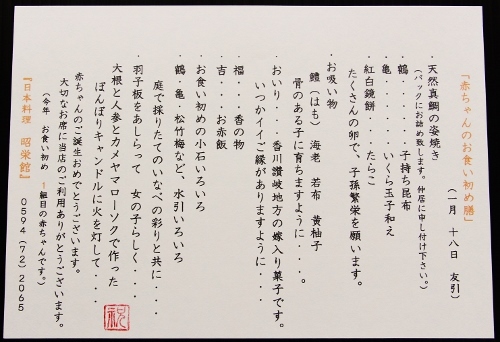 「赤ちゃんのお食い初め膳」
(一月 十八日 友引)
・天然真鯛の姿焼き
(パックにお詰め致します。仲居に申し付け下さい。)
・鶴・・・・・・子持ち昆布
・亀・・・・・・いくら玉子和え
・紅白鏡餅・・・・たらこ
たくさんの卵で、子孫繁栄を願います。
・お吸い物
鱧(はも) 海老 若布 黄柚子
骨のある子に育ちますように・・・・。
・おいり・・・香川讃岐地方の嫁入り菓子です。
いつかイイご縁がありますように・・・・
・福・・・香の物
・吉・・・お赤飯
・お食い初めの小石いろいろ
・鶴・亀・松竹梅など、水引いろいろ
庭で採りたてのいなべの彩りと共に・・・・
・羽子板をあしらって 女の子らしく・・・・
大根と人参とカメヤマローソクで作った
ぼんぼりキャンドルに火を灯して・・・・
赤ちゃんのご誕生おめでとうございます。
大切なお席に当店のご利用ありがとうございます。
(今年 お食い初め 1組目の赤ちゃんです。)
『日本料理 昭栄館』 0594(72)2065
祝